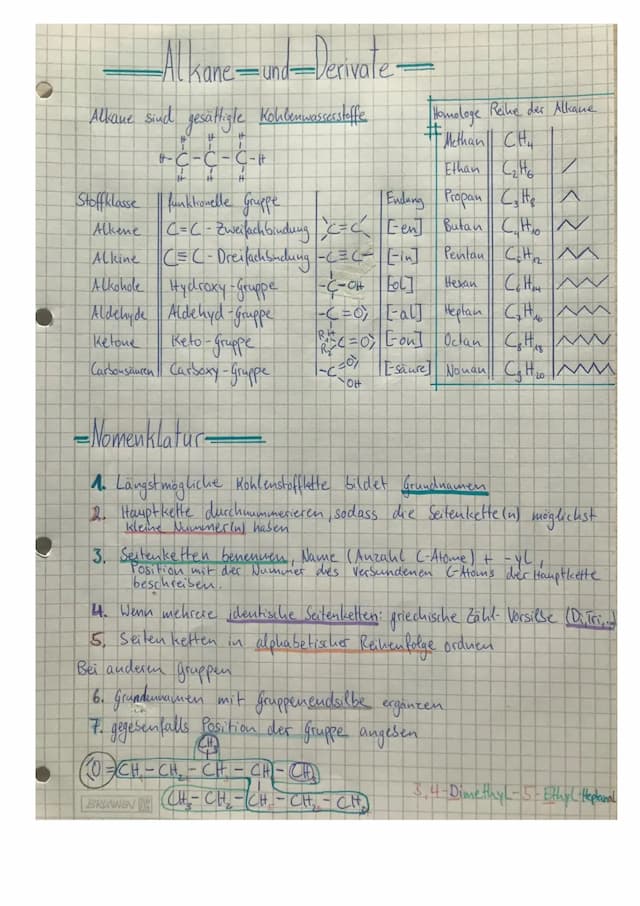 Alkane und Derivate
Alkane sind gesättigte Kohlenwasserstoffe
H H H
H-C-C-C-H
H H H
Homologe Reihe der Alkane
Methan CH₄
Ethan C₂H₆
Propan C₃H₈
Butan C₄H₁₀
Pentan C₅H₁₂
Hexan C₆H₁₄
Heptan C₇H₁₆
Octan C₈H₁₈
Nonan C₉H₂₀
Stoffklasse funktionelle Gruppe Endung
Alkene C=C-Zweifachbindung C=C [-en]
Alkine C≡C-Dreifachbindung -C≡C- [-in]
Alkohole Hydroxy-Gruppe -C-OH [ol]
Aldehyde Aldehyd-Gruppe -C=O [-al]
Ketone Keto-Gruppe R₂ C=O [-on]
Carbonsäuren Carboxy-Gruppe -C=O OH [-säure]
Nomenklatur
1. Längstmögliche Kohlenstoffkette bildet Grundnamen
2. Hauptkette durchnummerieren, sodass die Seitenkette(n) möglichst
kleine Nummer(n) haben
3. Seitenketten benennen, Name (Anzahl C-Atome) + -yl,
Position mit der Nummer des verbundenen C-Atoms der Hauptkette
beschreiben.
4. Wenn mehrere identische Seitenketten: griechische Zähl-Vorsilbe (Di,Tri,..)
5. Seitenketten in alphabetischer Reihenfolge ordnen
Bei anderen Gruppen
6. Grundnamen mit Gruppenendsilbe ergänzen
7. gegebenfalls Position der Gruppe angeben
CH₃
O=CH-CH₂-CH-CH-CH₃
CH₃-CH₂-CH-CH₂-CH₃
BRUNNEN
3,4-Dimethyl-5-Ethyl-Heptanal